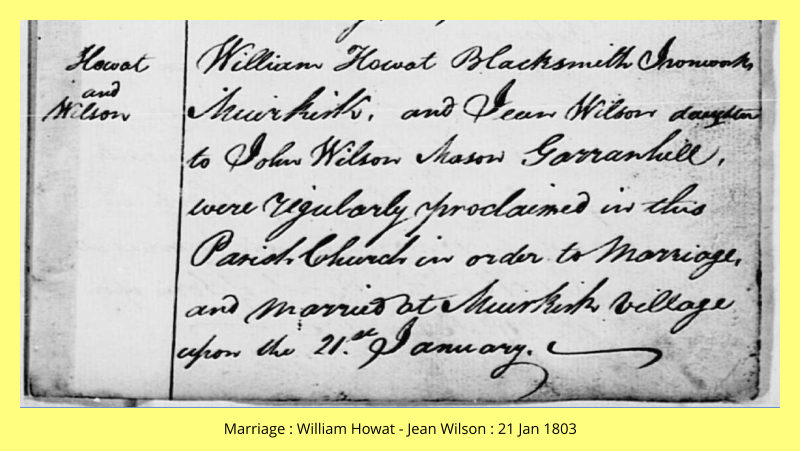 Howat
and
Wilson
William Howat Blacksmith Ironworks
Muirkirk, and Jean Wilson daughter
to John Wilson Mason Garranhill,
were regularly proclaimed in this
Parish Church in order to Marriage,
and married at Muirkirk Village
upon the 21.st January.
Marriage : William Howat - Jean Wilson : 21 Jan 1803